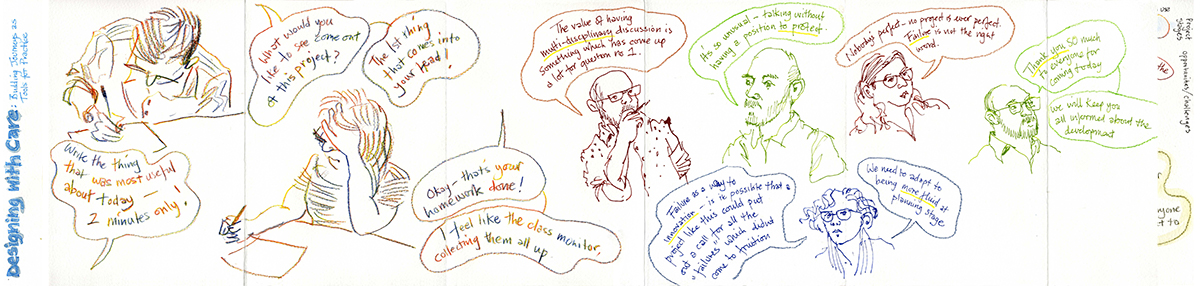 Designing with Care:
Building Journeys as
Tools for Practice
Write the thing
that was most useful
about today —
2 minutes only!
What would you
like to see come out
of this project?
The 1st thing
that comes into
your head!
Okay – that's your
homework done!
I feel like the class monitor,
collecting them all up
The value of having
multi-disciplinary discussion is
something which has come up
a lot for question to 1.
It's so unusual – talking without
having a position to protect.
Failure as a way to
innovation – is it possible that a
project like this could put
out a call for all the
"failures" which didn't
come to fruition
Nobody's perfect – no project is ever perfect.
Failure is not the right
word.
We need to adapt to
being more fluid at
planning stage
Thank you SO much
to everyone for
coming today
We will keep you
all informed about the
development
opportunities/challenges
the
yone
t to